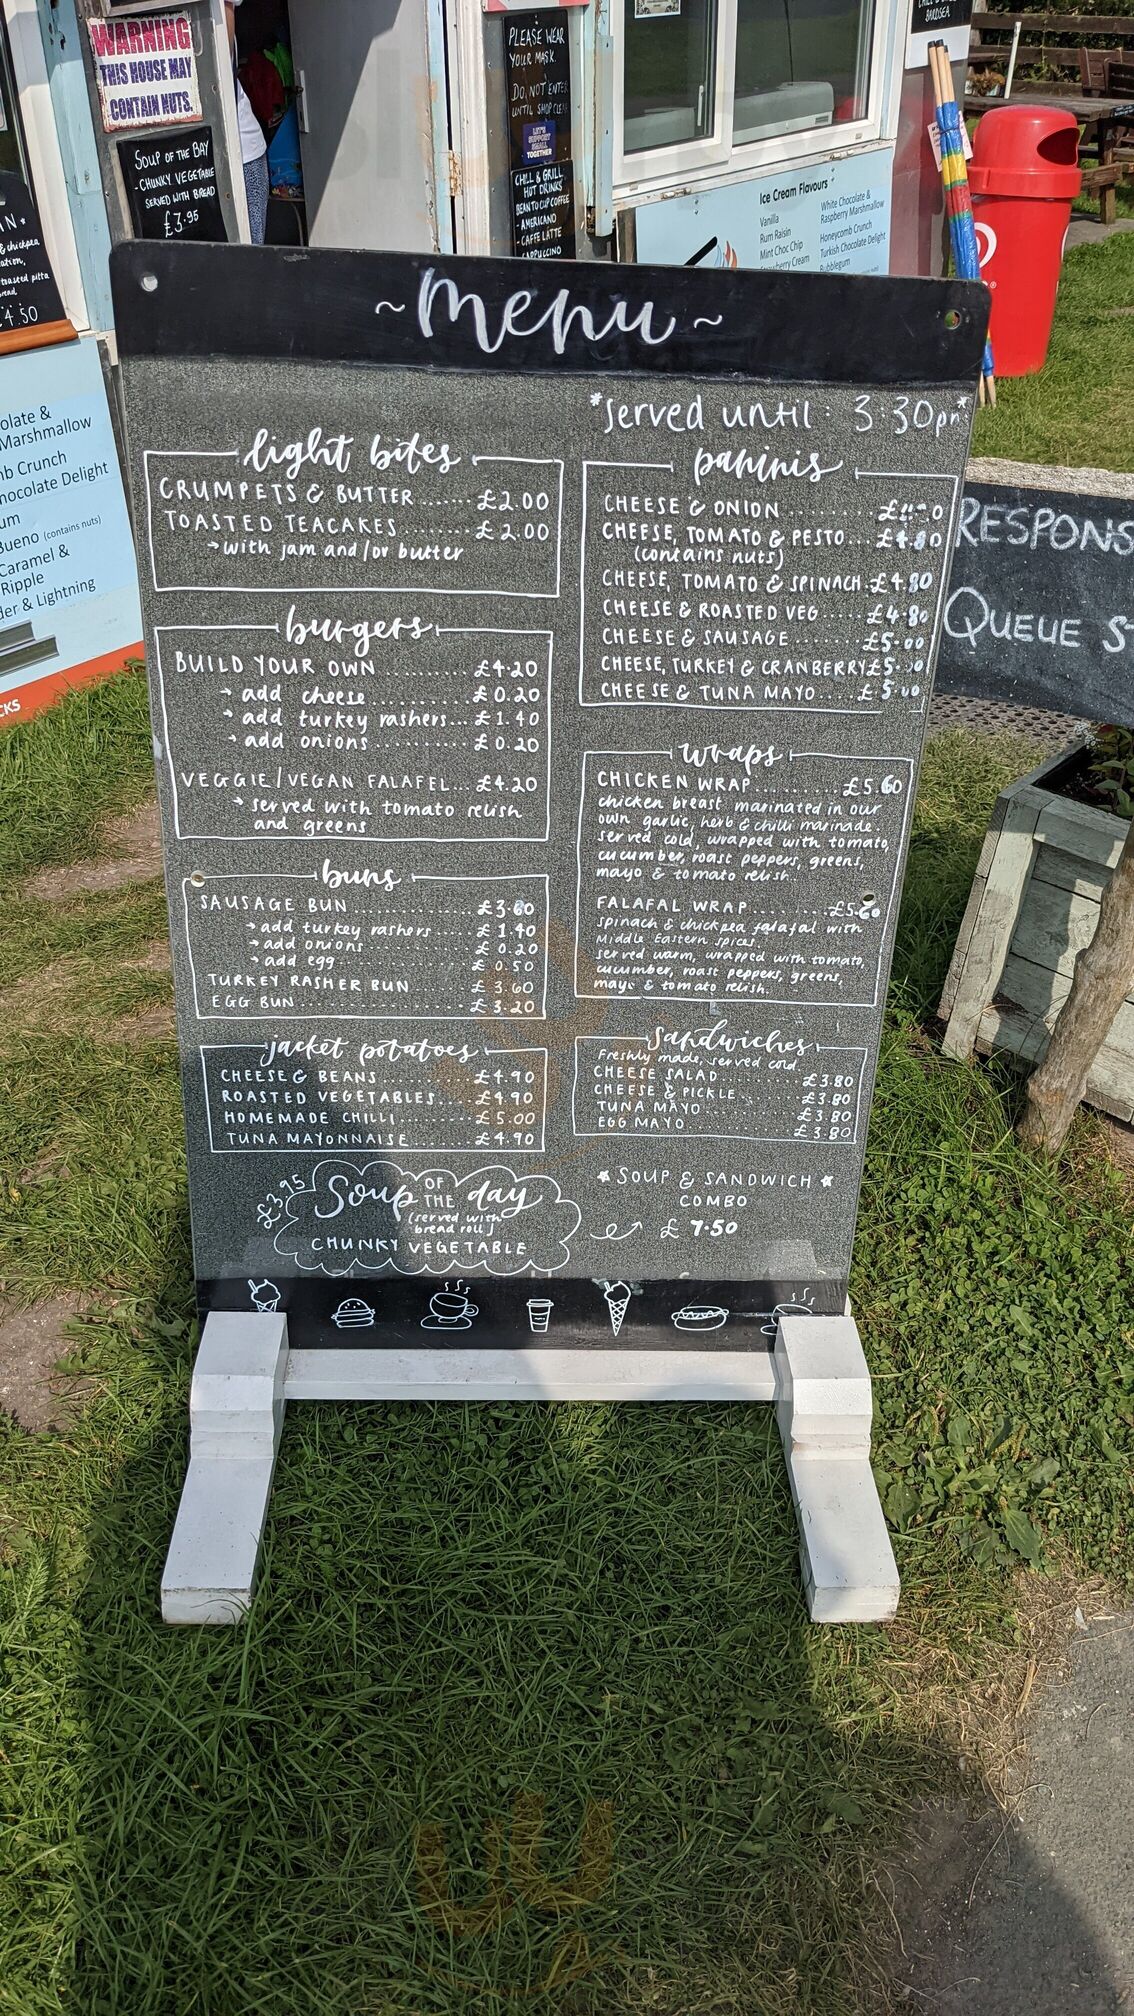 WARNING
THIS HOUSE MAY
CONTAIN NUTS.
SOUP OF THE BAY
- CHUNKY VEGETABLE
SERVED WITH BREAD
£3.95
PLEASE WEAR
YOUR MASK.
DO NOT ENTER
UNTIL SHOP CLEAR
LET'S
SUPPORT
SMALL
TOGETHER
CHILL & GRILL
HOT DRINKS
BEAN TO CUP COFFEE
- AMERICANO
- CAFFE LATTE
CAPPUCCINO
Ice Cream Flavours
Vanilla
Rum Raisin
Mint Choc Chip
Strawberry Cream
White Chocolate &
Raspberry Marshmallow
Honeycomb Crunch
Turkish Chocolate Delight
Bubblegum
& chickpea
toasted pitta
bread
4.50
olate &
Marshmallow
mb Crunch
hocolate Delight
um
Bueno (contains nuts)
Caramel &
Ripple
der & Lightning
CKS
~ Menu ~
*served until: 3:30pm*
light bites
CRUMPETS & BUTTER ....... £2.00
TOASTED TEACAKES ......... £2.00
→ with jam and/or butter
burgers
BUILD YOUR OWN ........... £4.20
→ add cheese ........... £0.20
→ add turkey rashers... £1.40
→ add onions .......... £0.20
VEGGIE/VEGAN FALAFEL... £4.20
→ served with tomato relish
and greens
buns
SAUSAGE BUN ............... £3.60
→ add turkey rashers ..... £1.40
→ add onions ............... £0.20
→ add egg .................. £0.50
TURKEY RASHER BUN ...... £3.60
EGG BUN .................... £3.20
jacket potatoes
CHEESE & BEANS ........... £4.90
ROASTED VEGETABLES.... £4.90
HOMEMADE CHILLI ......... £5.00
TUNA MAYONNAISE ....... £4.90
£3.95
Soup OF THE day
(served with
bread roll)
CHUNKY VEGETABLE
paninis
CHEESE & ONION ..........
CHEESE, TOMATO & PESTO... £4.80
(contains nuts)
CHEESE, TOMATO & SPINACH.. £4.80
CHEESE & ROASTED VEG ..... £4.80
CHEESE & SAUSAGE ........ £5.00
CHEESE, TURKEY & CRANBERRY £5.00
CHEESE & TUNA MAYO .... £5.00
wraps
CHICKEN WRAP .......... £5.60
chicken breast marinated in our
own garlic, herb & chilli marinade.
served cold, wrapped with tomato,
cucumber, roast peppers, greens,
mayo & tomato relish.
FALAFAL WRAP ......... £5.60
spinach & chickpea falafal with
Middle Eastern spices.
served warm, wrapped with tomato,
cucumber, roast peppers, greens,
mayo & tomato relish.
sandwiches
Freshly made, served cold
CHEESE SALAD ........... £3.80
CHEESE & PICKLE ........ £3.80
TUNA MAYO ............. £3.80
EGG MAYO ............... £3.80
* SOUP & SANDWICH *
COMBO
£7.50
RESPONS
QUEUE S